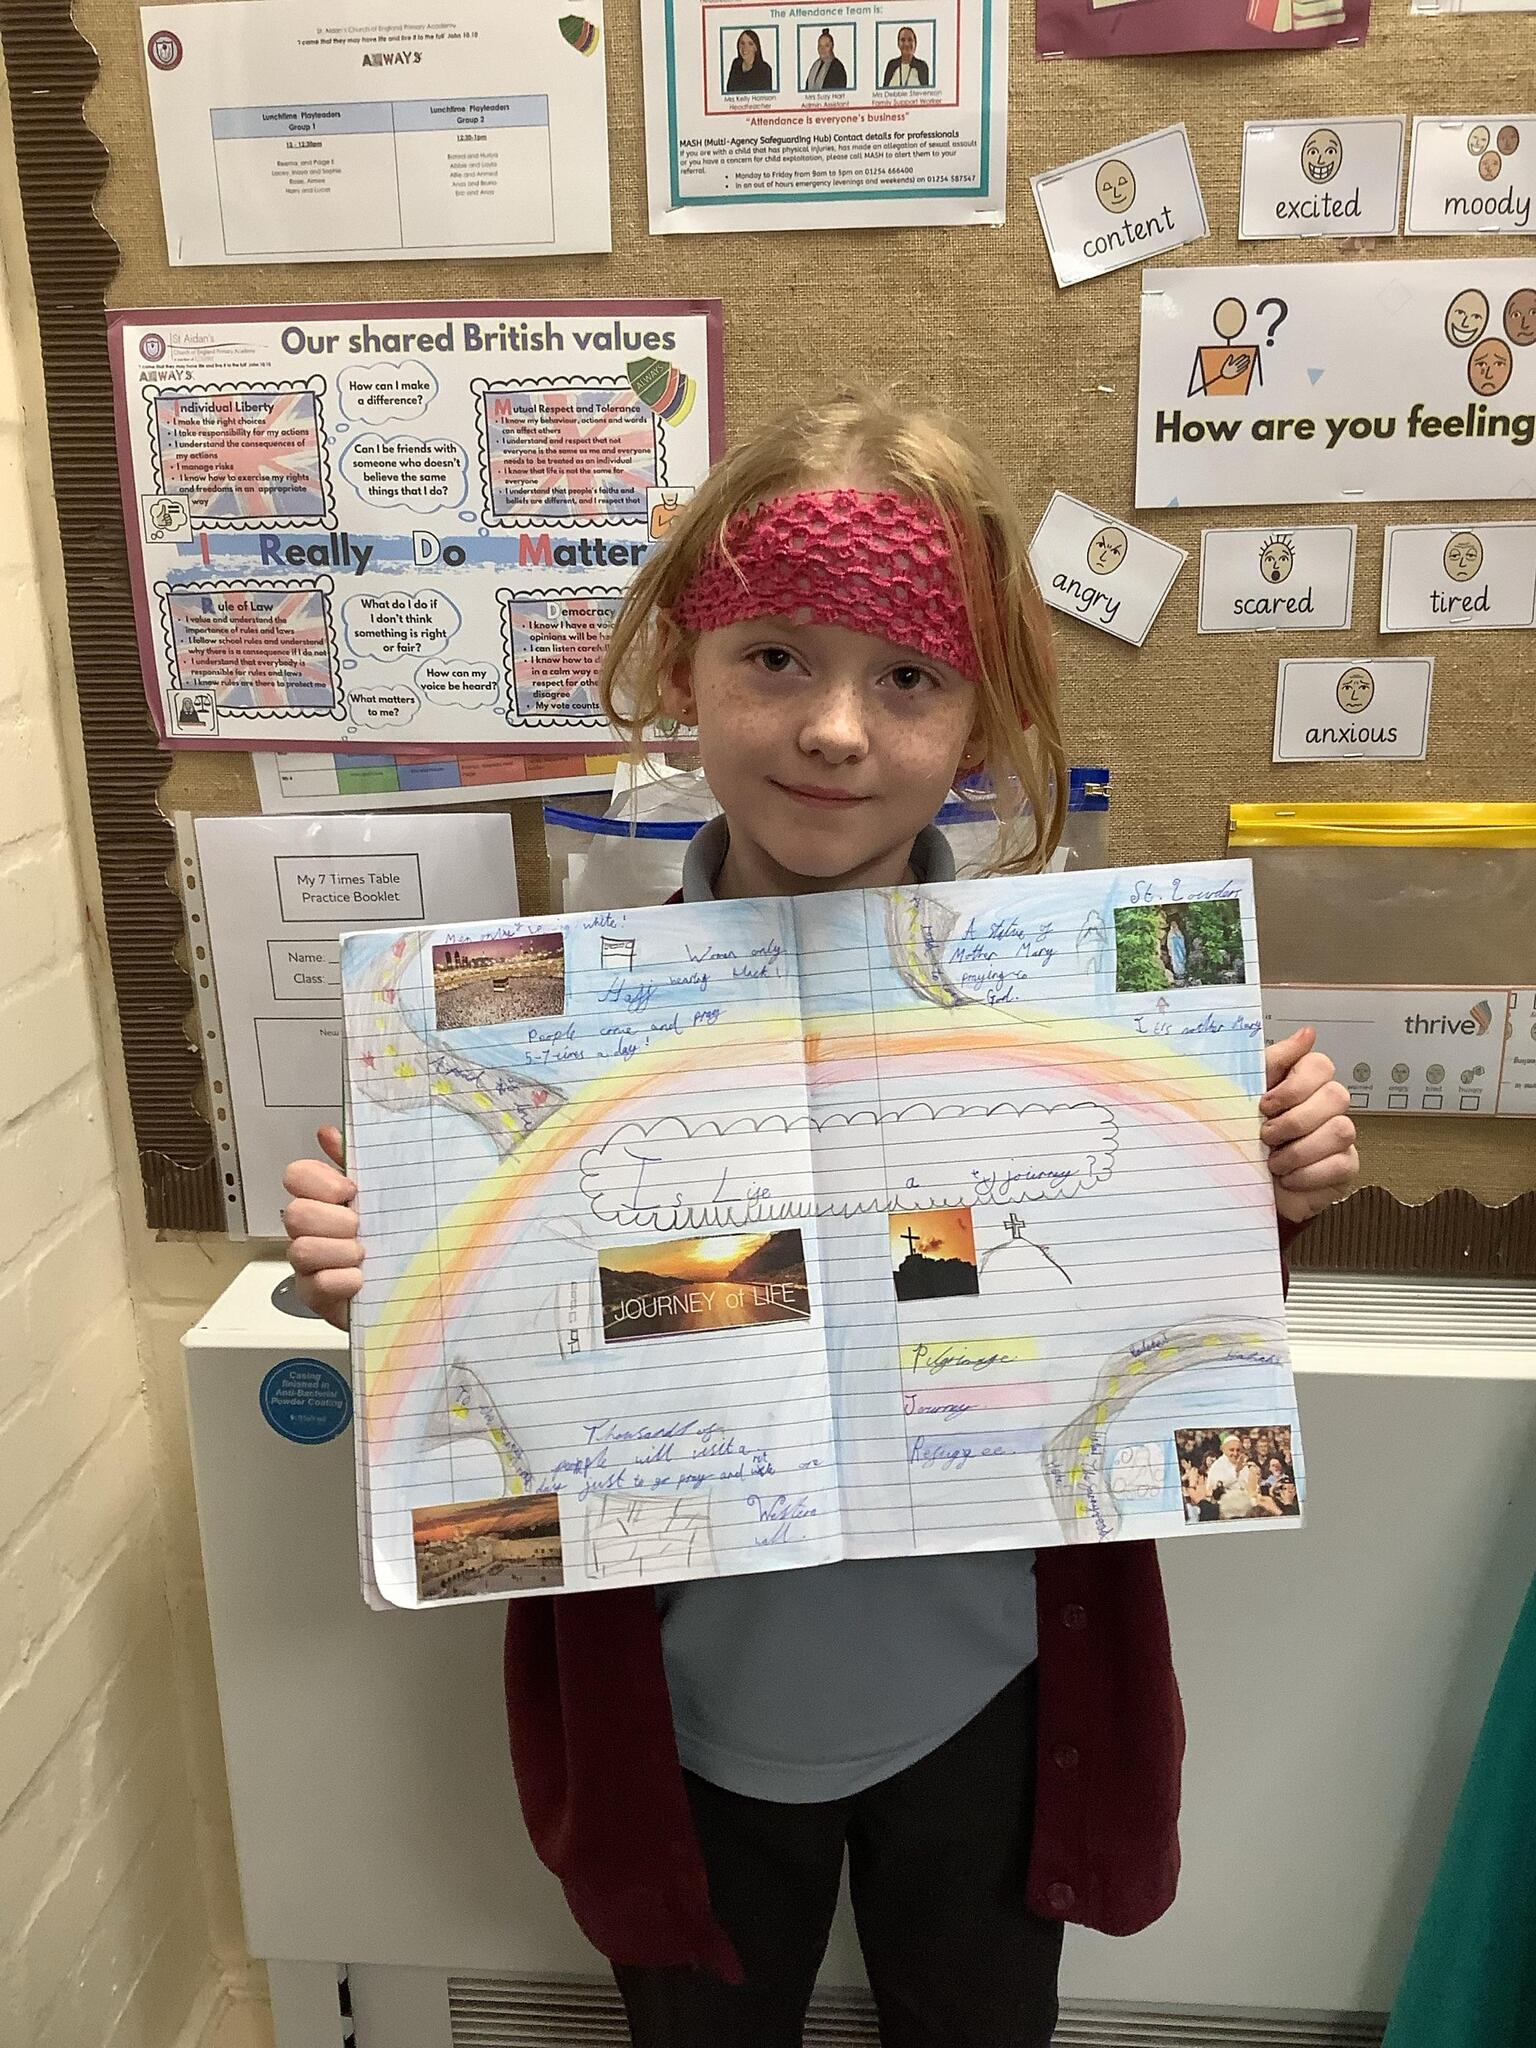 St. Aidan's Church of England Primary Academy
'I came that they may have life and live it to the full' John 10.10
ALWAYS
Lunchtime Playleaders
Group 1
Lunchtime Playleaders
Group 2
12 - 12:30pm
12:30-1pm
Harry and Lucas
The Attendance Team is:
Mrs Kelly Harrison
Headteacher
Mrs Suzy Hart
Admin Assistant
Mrs Debbie Stevenson
Family Support Worker
"Attendance is everyone's business"
MASH (Multi-Agency Safeguarding Hub) Contact details for professionals
If you are with a child that has physical injuries, has made an allegation of sexual assault
or you have a concern for child exploitation, please call MASH to alert them to your
referral.
• Monday to Friday from 9am to 5pm on 01254 666400
• In an out of hours emergency (evenings and weekends) on 01254 587547
content
excited
moody
How are you feeling
angry
scared
tired
anxious
St Aidan's
Church of England Primary Academy
ALWAYS
Our shared British values
Individual Liberty
• I make the right choices
• I take responsibility for my actions
• I understand the consequences of
my actions
• I manage risks
• I know how to exercise my rights
and freedoms in an appropriate
way
How can I make
a difference?
Can I be friends with
someone who doesn't
believe the same
things that I do?
Mutual Respect and Tolerance
• I know my behaviour, actions and words
can affect others
• I understand and respect that not
everyone is the same as me and everyone
needs to be treated as an individual
• I know that life is not the same for
everyone
• I understand that people's faiths and
beliefs are different, and I respect that
ALWAYS
I Really Do Matter
Rule of Law
• I value and understand the
importance of rules and laws
• I follow school rules and understand
why there is a consequence if I do not
• I understand that everybody is
responsible for rules and laws
• I know rules are there to protect me
What do I do if
I don't think
something is right
or fair?
How can my
voice be heard?
What matters
to me?
Democracy
• I know I have a
opinions will be
• I can listen
• I know how to
in a calm way
respect for
disagree
• My vote counts
My 7 Times Table
Practice Booklet
Name:
Class:
thrive
worried
angry
tired
hungry
Casing
finished in
Anti-Bacterial
Powder Coating
Men only white!
Woman only
wearing black!
Hajj
People come and pray
5-7 times a day!
St. Lourdes
A statue of
Mother Mary
praying to
God.
It's mother Mary
Is Life a journey?
JOURNEY of LIFE
Pilgrimage
Journey
Refuggee
Thousands of
people will visit a
day just to go pray and
Western
wall.